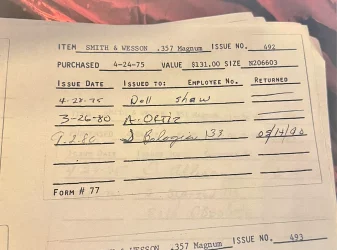 ITEM SMITH & WESSON .357 Magnum ISSUE NO. 492
PURCHASED 4-24-75 VALUE $131.00 SIZE N206603
ISSUE DATE ISSUED TO: EMPLOYEE NO. RETURNED
4-28-75 Doll Shaw
3-26-80 A. Ortiz
9.2.80 133
FORM # 77
& WESSON .357 Magnum ISSUE NO. 493